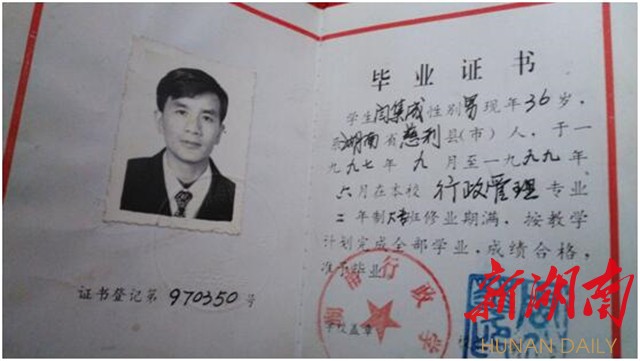 毕业证书
学生闫集成性别男现年36岁，
系湖南省慈利县(市)人，于一
九九七年九月至一九九九年
六月在本校行政管理专业
二年制大专班修业期满，按教学
计划完成全部学业，成绩合格，
准予毕业
证书登记第970350号
学校盖章
行政学
新湖南
HUNAN DAILY